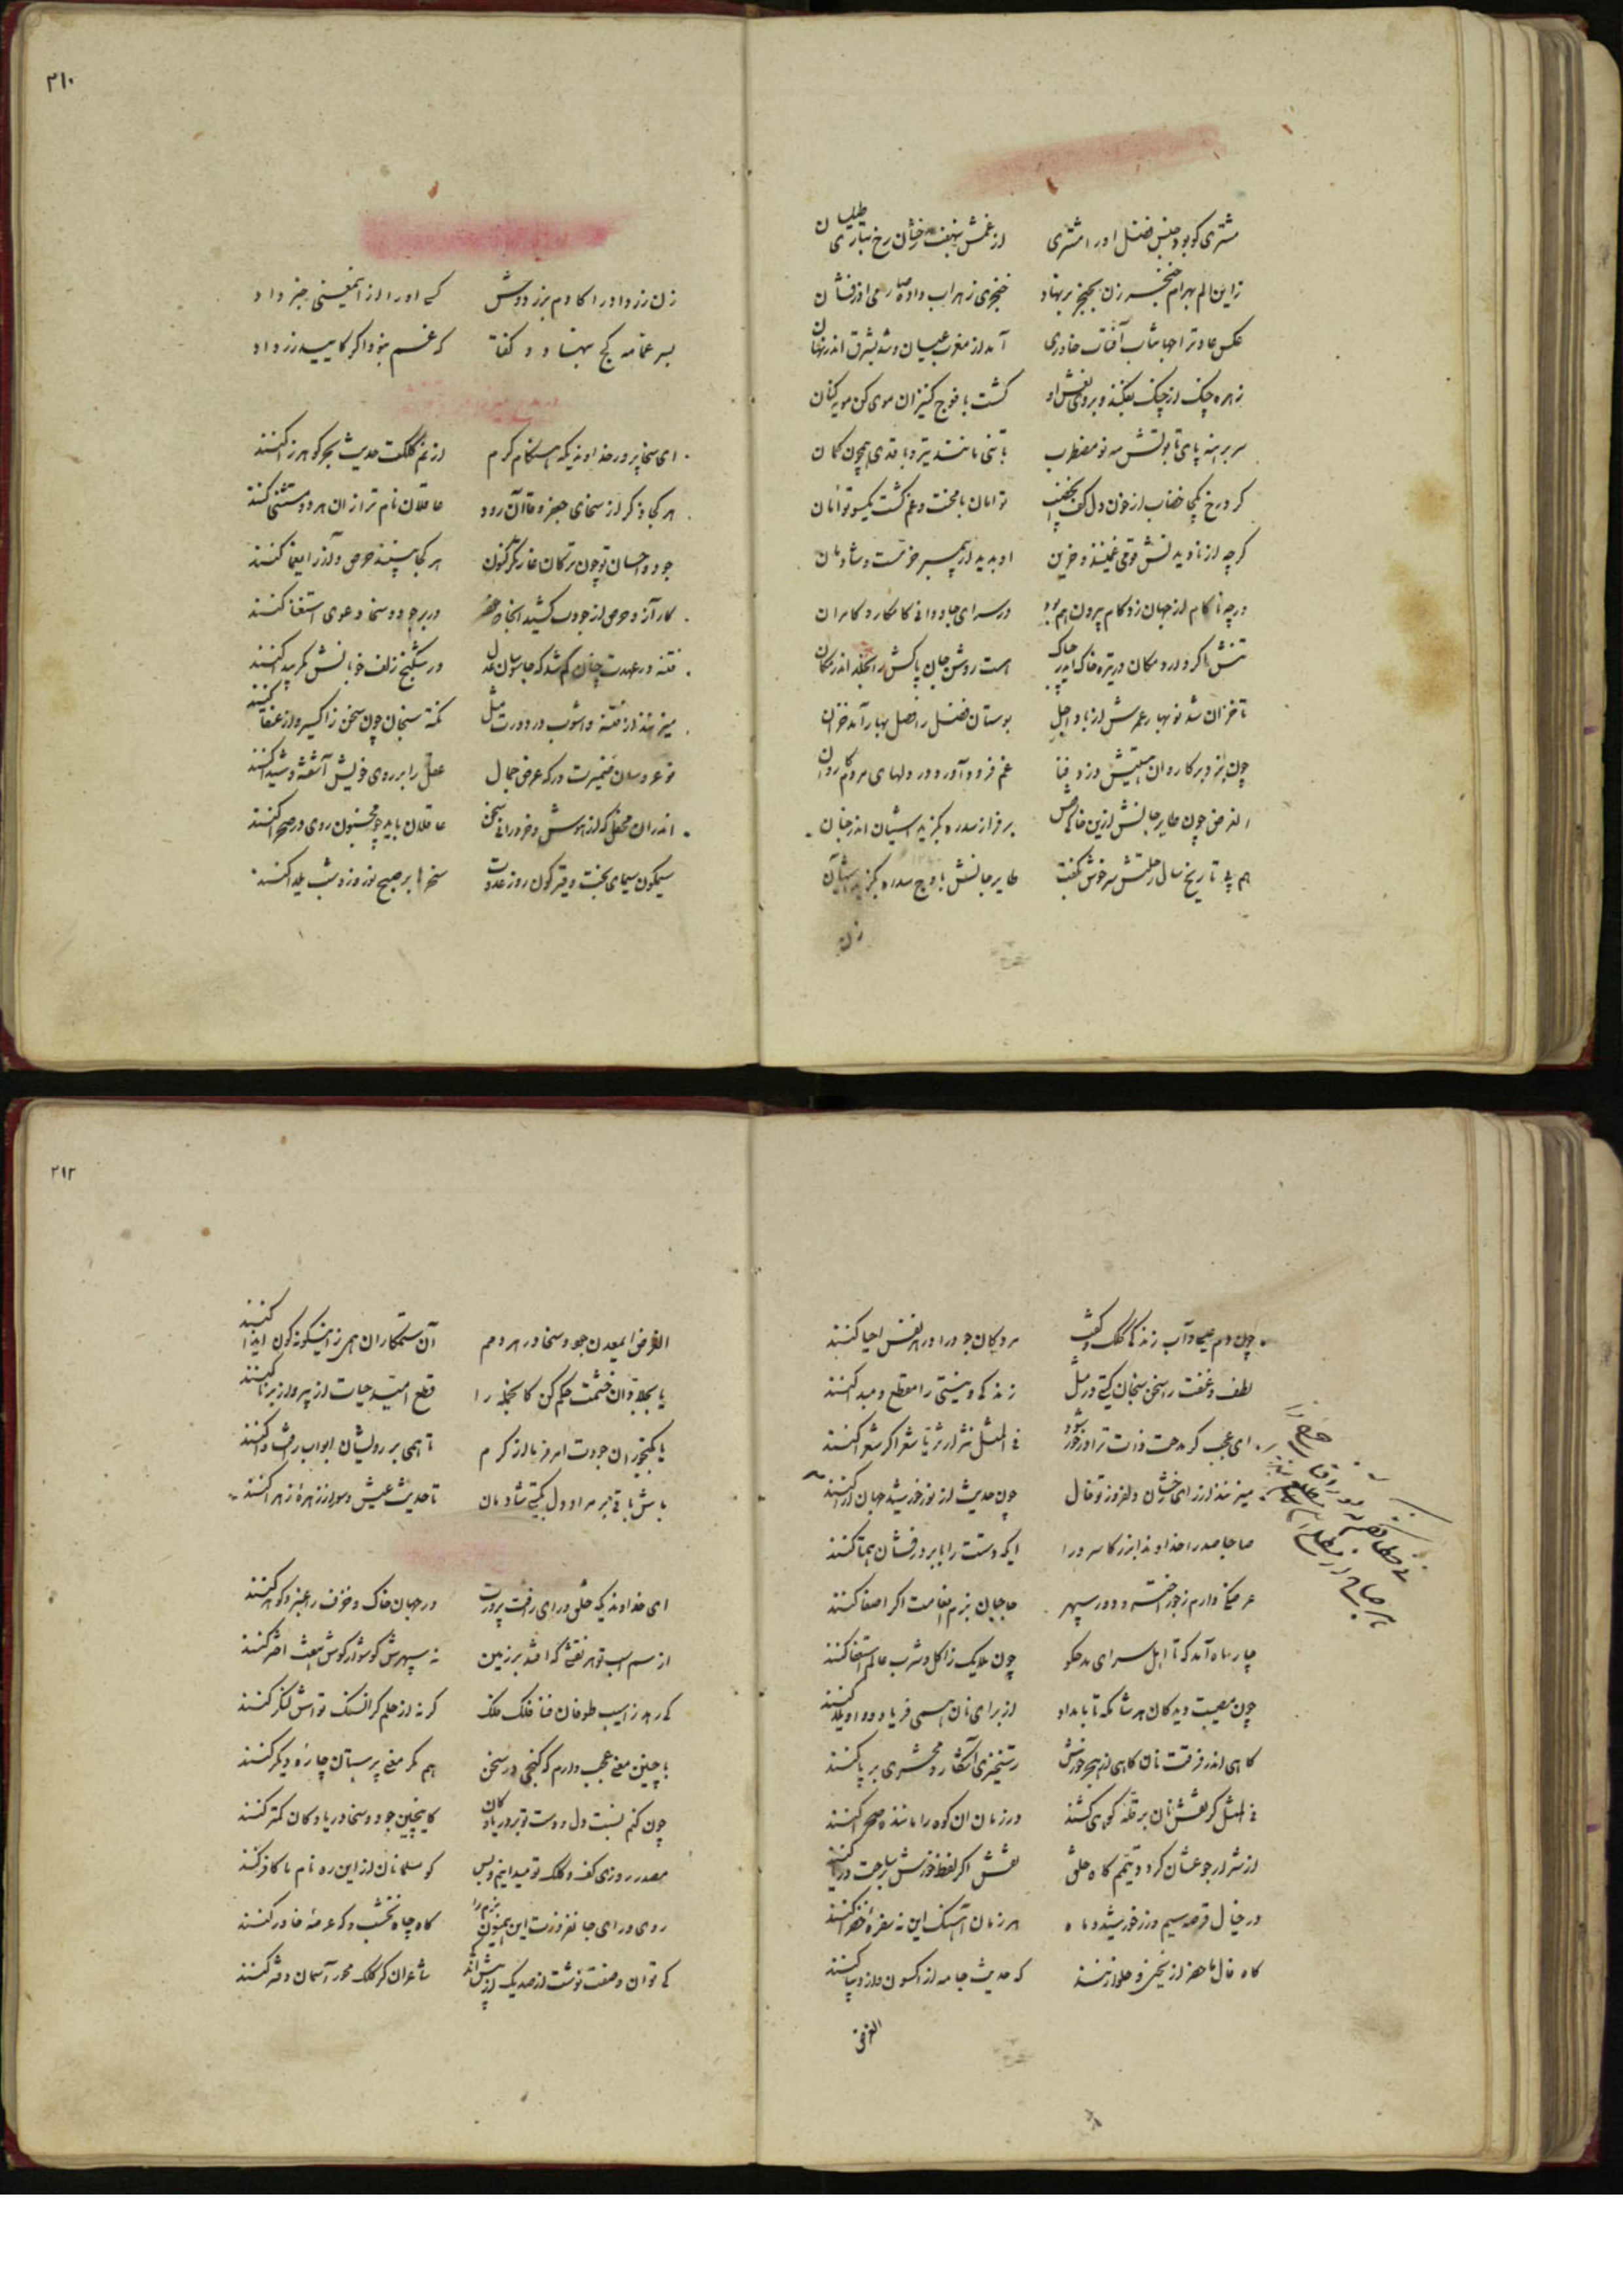 مشتری کو بود جنس فضل او را مشتری از غمش بنهفت رخشان رخ بتاری طیلسان
زاین الم بهرام خنجر زن بحنجر بر نهاد خنجری زهراب داده صارمی اذرفشان
عکس عادت را حباشاب آفتاب خاوری آمد از مغرب عیان و شد بشرق اندر نهان
زهره چنک از چنک بفکند و بر روی نعش او کشت با فوج کنیزان موی کن مویه کنان
سر برهنه پای تابوتش مه نو مضطرب با تنی مانند تیر و با قدی همچون کمان
کرد رخ یکجا خضاب از خون دل کف الخضیب توامان با محنت و غم کشت یکسو توأمان
کرچه از نادیدنش قومی غمینند و حزین او بدیدار پیمبر خرمست و شادمان
ورچه ناکام از جهان زد کام بیرون هم بود در سرای جاودانی کامکار و کامران
تنش اکر دارد مکان در تیره خاک اندر چه باک هست روشن جان پاکش را بخلد اندر مکان
تا خزان شد نوبهار عمرش از باد اجل بوستان فضل را فصل بهار آمد خزان
چون بزد بر کاروان هستیش دزد فنا غم فرود آورد در دلهای مردم کاروان
الغرض چون طایر جانش ازین خاکی قفص بر فراز سدره بکزید آشیان اندر جنان
هم پی تاریخ سال رحلتش سرخوش بکفت طایر جانش باوج سدره بکزید آشیان
زن
۲۱۰
زن زرد داور را کادم بزد دوش کی او را از این معنی خبر داد
بسر عمامه کج بنهاد و کفتا که غم نبود اکر کاییید زر داد
ای سخا پرور خداوندیکه هنکام کرم از نم کلکت حدیث بحر کوهرزا کنند
هر کجا ذکر از سخای جعفر و قاآن رود عاقلان نام ترا زان هر دو مستثنی کنند
جود و احسان تو چون ترکان غارتکر کنون هر کجا بینند حرص و آز را یغما کنند
کار آز و حرص از جودت کشید انجا که خود در بر جود و سخا دعوی استغنا کنند
فتنه در عهدت چنان کم شد که جاسوسان عدل در شکنج زلف خوبانش مکر پیدا کنند
میزنند از فتنه و آشوب در دورت مثل نکته سنجان چون سخن زاکسیر و از عنقا کنند
نو عروسان ضمیرت در که عرض جمال عقل را بر روی خویش آشفته و شیدا کنند
اندران محفل که از هوش و خرد رانی سخن عاقلان باید چو مجنون روی در صحرا کنند
سیمکون سیمای بخت و قیرکون روز عدوت سخرها بر صبح نوروز و شب یلدا کنند
چون دم عیسی و آب زندکی کلک و کفت مردکان جود را در هر نفس احیا کنند
لطف و عنفت را سخن سنجان کیتی در مثل زندکی و نیستی را مقطع و مبدا کنند
ای عجب کر مدحت ذات ترا در خور شود فی المثل نثر ار ثریا شعر اکر شعرا کنند
میزنند از رای رخشان دلفروز تو فال چون حدیث از نور خورشید جهان آرا کنند
صاحبا صدرا خداوندا بزرکا سرورا ایکه دستت را بابر درفشان همتا کنند
عرضکی دارم ز جور اختر و دور سپهر حاجبان بزم انعامت اکر اصغا کنند
چار ماه آمد که تا اهل سرای مدحکو چون ملایک ز اکل و شرب عالم استغنا کنند
چون مصیبت دیدکان هر شامکه تا بامداد از برای نان همی فریاد و واویلا کنند
کاهی اندر فرقت نان کاهی از هجر خورش رستخیزی آشکار و محشری بر پا کنند
فی المثل کر نقش نان بر قله کوهی کشند در زمان ان کوه را مانند صحرا کنند
از شرار جوعشان کردد تیمم کاه خلق نقش اکر لفظ خورش بر ساحت دریا کنند
در خیال قرصه سیم و زر خورشید و ماه هر زمان آهنک این نه سفره خضرا کنند
کاه فال ما حضر از یخنی و حلوا زنند که حدیث جامه از اکسون و از دیبا کنند
الغرض
۲۱۲
الغرض ایمعدن جود و سخا در هر دمم آن ستمکاران همی زاینکونه کون ایذا کنند
یا بجلادان خشمت حکم کن کاینجمله را قطع امید حیات از پیر و از برنا کنند
یا بکنجوران جودت امر فرما از کرم تا همی بر رویشان ابواب رافت وا کنند
باش باقی بر مراد دل بکیتی شادمان تا حدیث عیش و سور از زهره زهرا کنند
ای خداوندیکه خلق و رای رافت پرورت در جهان خاک و خزف را عنبر و کوهر کنند
از سم اسب تو هر نقشی که افتد بر زمین نه سپهرش کوشوار کوش هفت اختر کنند
کی رهد ز آسیب طوفان فنا فلک فلک کر نه از حلم کرانسنک تواش لنکر کنند
با چنین معنی عجب دارم که کنجی در سخن هم مکر معنی پرستان چاره دیکر کنند
چون کنم نسبت دل و دست تو بر دریا و کان کاینچنین جود و سخا دریا و کان کمتر کنند
مصدر روزی کف و کلک تو میدانیم و بس کو مسلمانان از این ره نام ما کافر کنند
روی و رای جانفروزت این همیون بزم را کاه چاه نخشب و که عرصه خاور کنند
کی توان وصفت نوشت از صد یک از بیش اند شاعران کر کلک محور آسمان دفتر کنند